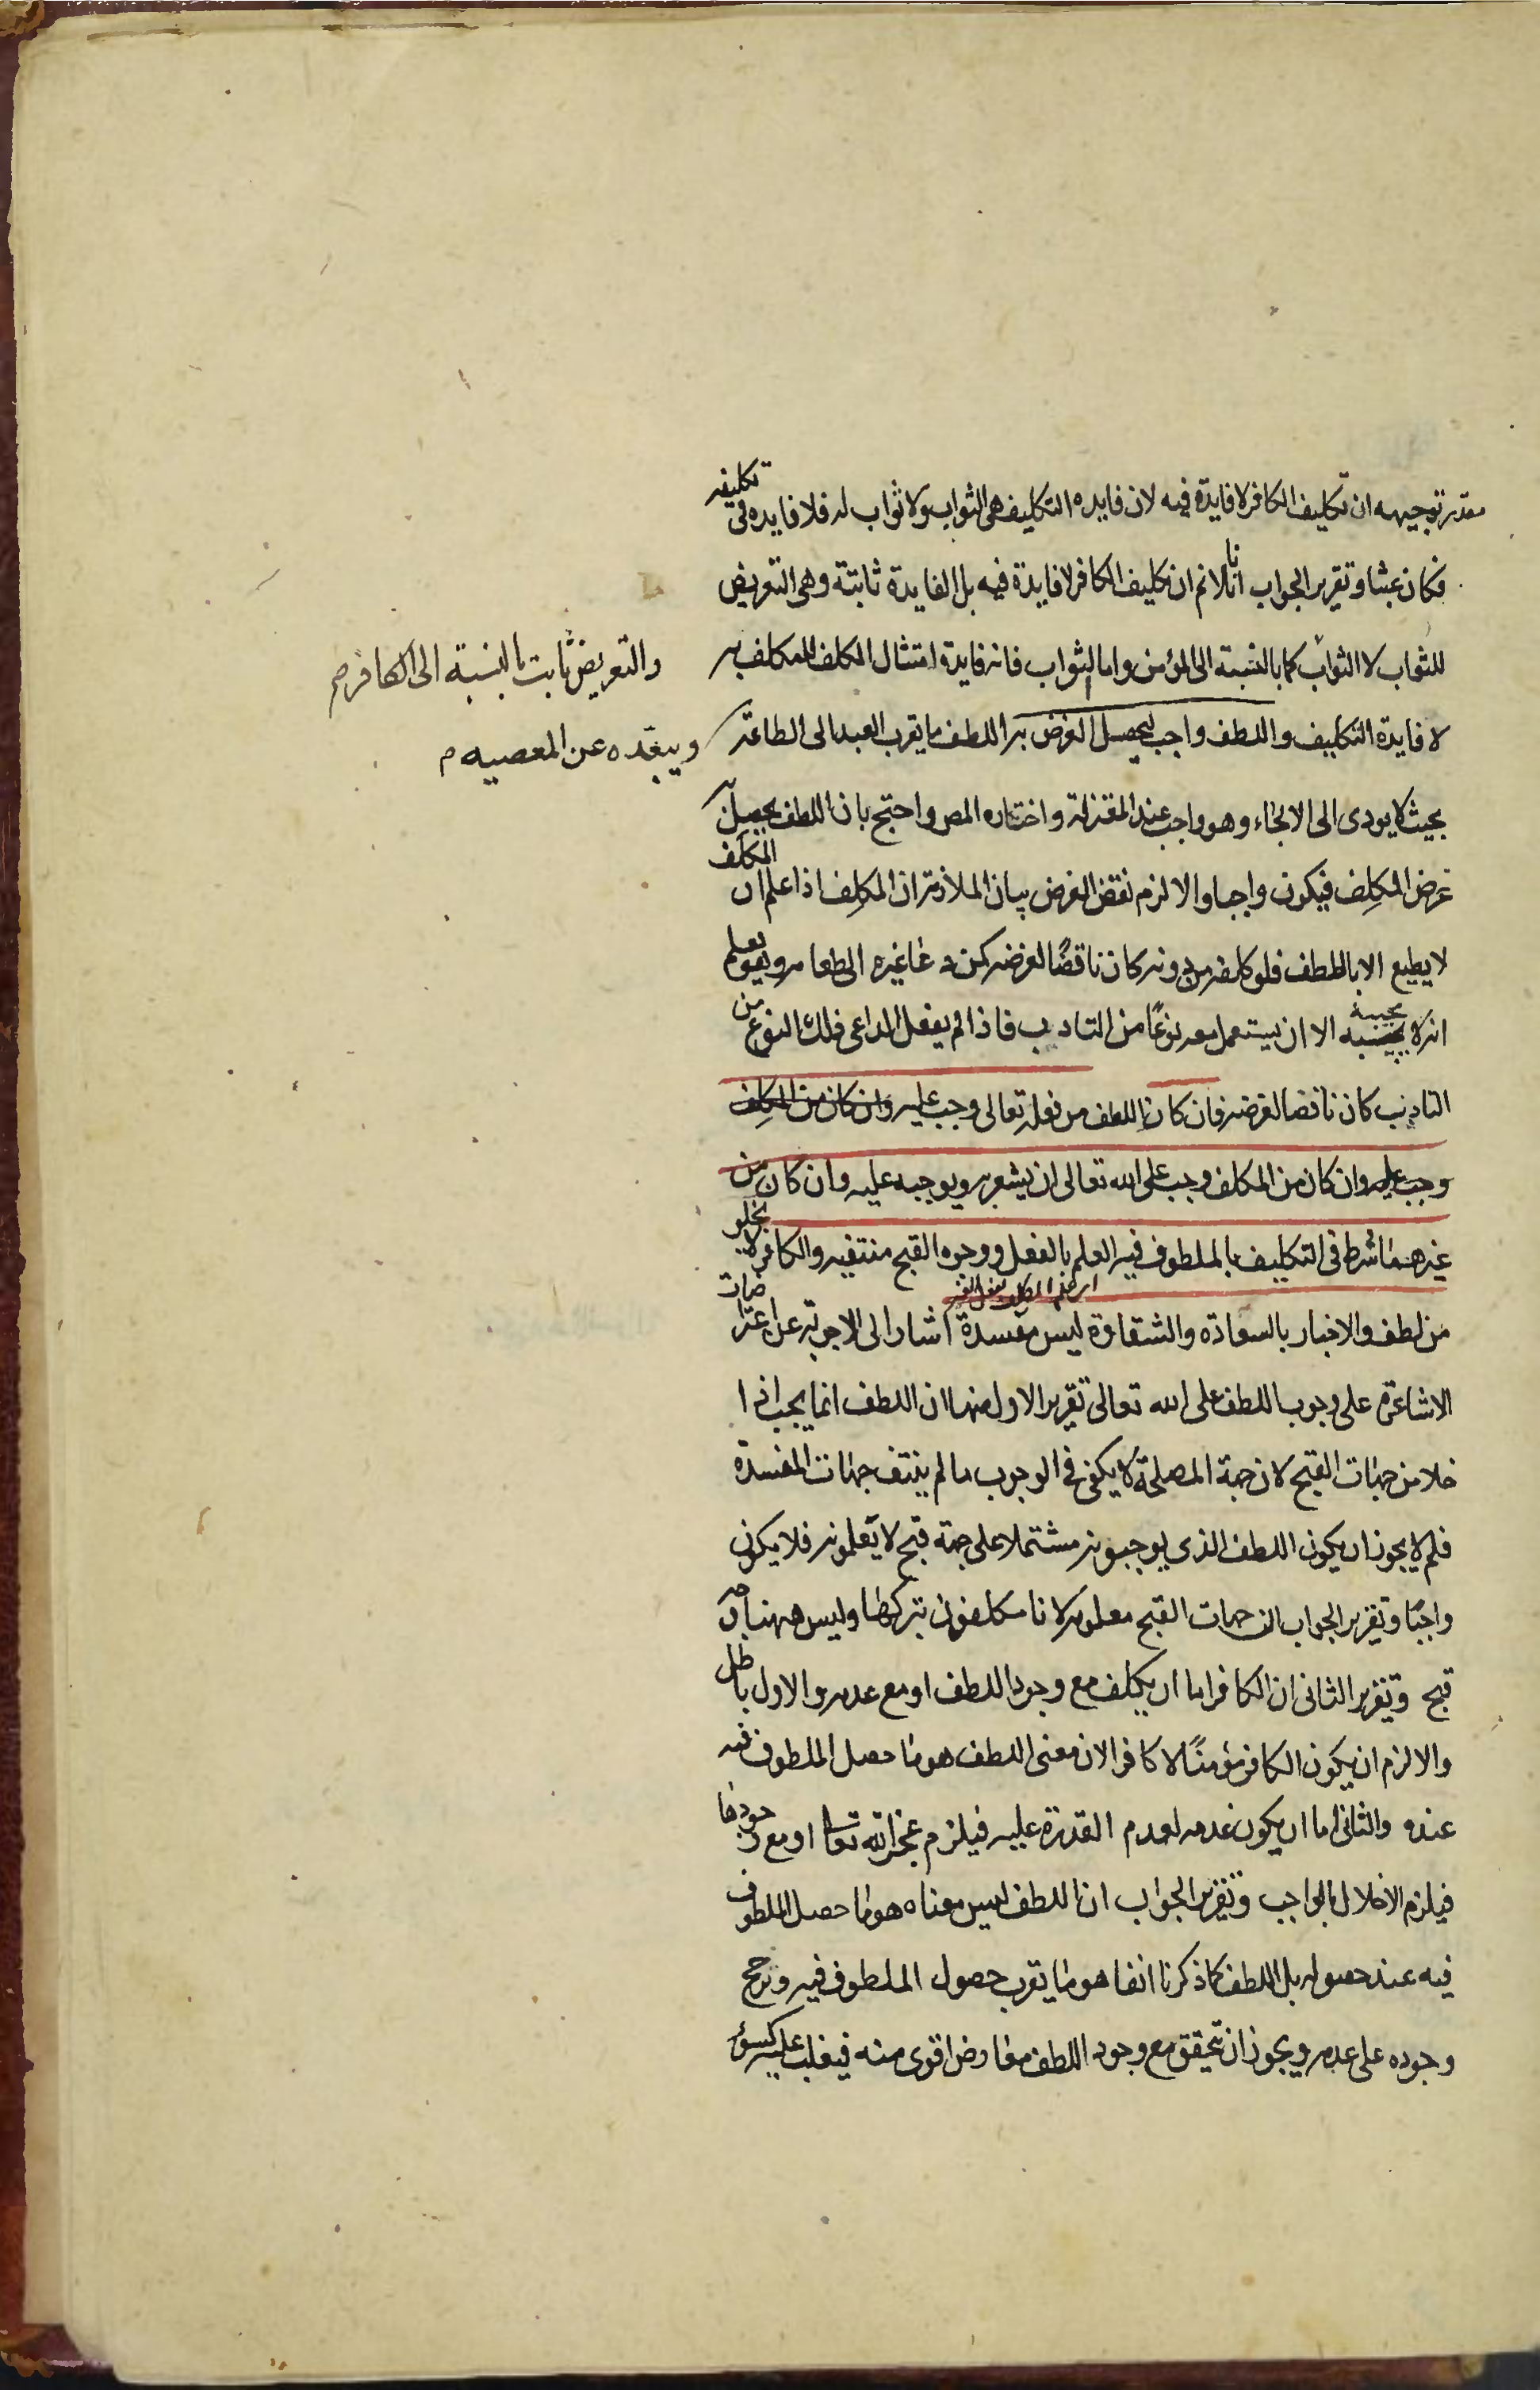 مقدر توجيهه ان تكليف الكافر لا فايدة فيه لان فايده التكليف هى الثواب ولا ثواب له فلا فايده فى تكليفه
فكان عبثا وتقرير الجواب انا لانم ان تكليف الكافر لا فايدة فيه بل الفايدة ثابتة وهى التعريض
للثواب لا الثواب كما بالنسبة الى المؤمن واما الثواب فانه فايدة امتثال المكلف للمكلف به
والتعريض ثابت بالنسبة الى الكافر صح
لا فايدة التكليف واللطف واجب ليحصل الغرض به اللطف ما يقرب العبد الى الطاعة
ويبعّده عن المعصيه م
بحيث لا يودى الى الالجاء وهو واجب عند المعتزلة واختاره المص واحتج بان اللطف يحصل
غرض المكلِف فيكون واجبا والا لزم نقض الغرض بيان الملازمة ان المكلِف اذا علم ان المكلَف
لا يطيع الا باللطف فلو كلفه من دونه كان ناقضًا لغرضه كمن دعا غيره الى طعامه ويعلم
انه لا يجيبه الا ان يستعمل معه نوعًا من التاديب فاذا لم يفعل الداعى ذلك النوع من
التاديب كان ناقضا لغرضه فان كان اللطف من فعله تعالى وجب عليه وان كان من المكلف
وجب عليه وان كان من المكلف وجب على الله تعالى ان يشعر به ويوجبه عليه وان كان من
غيرهما شرط فى التكليف بالملطوف فيه العلم بالفعل ووجوه القبح منتفيه والكافر لا يخلو
من لطف والاخبار بالسعادة والشقاوة ليس مفسدة اشار الى الاجوبة عن اعتراضات
الاشاعرة على وجوب اللطف على الله تعالى تقرير الاول منها ان اللطف انما يجب اذا
خلا من جهات القبح لان جهة المصلحة لا يكفى فى الوجوب ما لم ينتف جهات المفسدة
فلم لا يجوز ان يكون اللطف الذى يوجبونه مشتملا على جهة قبح لا تعلمونه فلا يكون
واجبًا وتقرير الجواب ان جهات القبح معلومه لانا مكلفون بتركها وليس ههنا وجه
قبح وتقرير الثانى ان الكافر اما ان يكلف مع وجود اللطف او مع عدمه والاول باطل
والا لزم ان يكون الكافر مؤمنًا لا كافرا لان معنى اللطف هو ما حصل الملطوف فيه
عنده والثانى اما ان يكون عدمه لعدم القدرة عليه فيلزم عجز الله تعا او مع وجودها
فيلزم الاخلال بالواجب وتقرير الجواب ان اللطف ليس معناه هو ما حصل الملطوف
فيه عند حصوله بل اللطف كما ذكرنا انفا هو ما يقرب حصول الملطوف فيه ويرجح
وجوده على عدمه ويجوز ان يتحقق مع وجود اللطف معارض اقوى منه فيغلب عليه كسوء